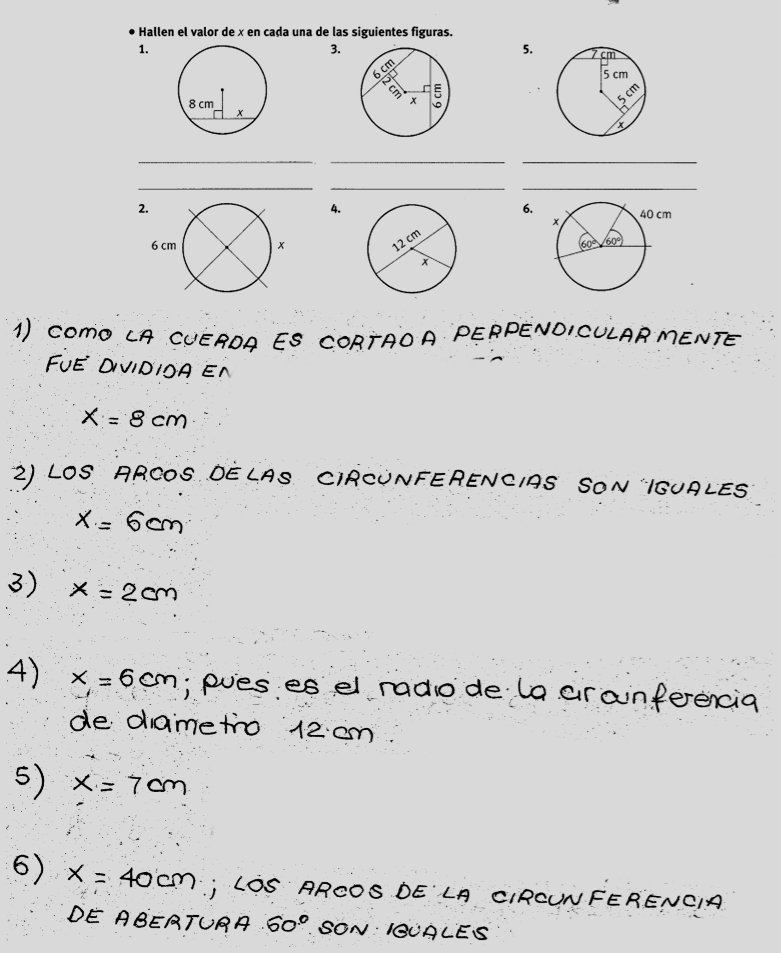 • Hallen el valor de x en cada una de las siguientes figuras.
1.
8 cm
x
3.
6 cm
2 cm
x
6 cm
5.
7 cm
5 cm
5 cm
x
2.
6 cm
x
4.
12 cm
x
6.
x
40 cm
60°
60°
1) COMO LA CUERDA ES CORTADA PERPENDICULARMENTE
FUE DIVIDIDA EN
X = 8 cm
2) LOS ARCOS DE LAS CIRCUNFERENCIAS SON IGUALES
X = 6 cm
3) X = 2 cm
4) X = 6 cm; pues es el radio de la circunferencia
de diametro 12 cm.
5) X = 7 cm
6) X = 40 cm; LOS ARCOS DE LA CIRCUNFERENCIA
DE ABERTURA 60° SON IGUALES